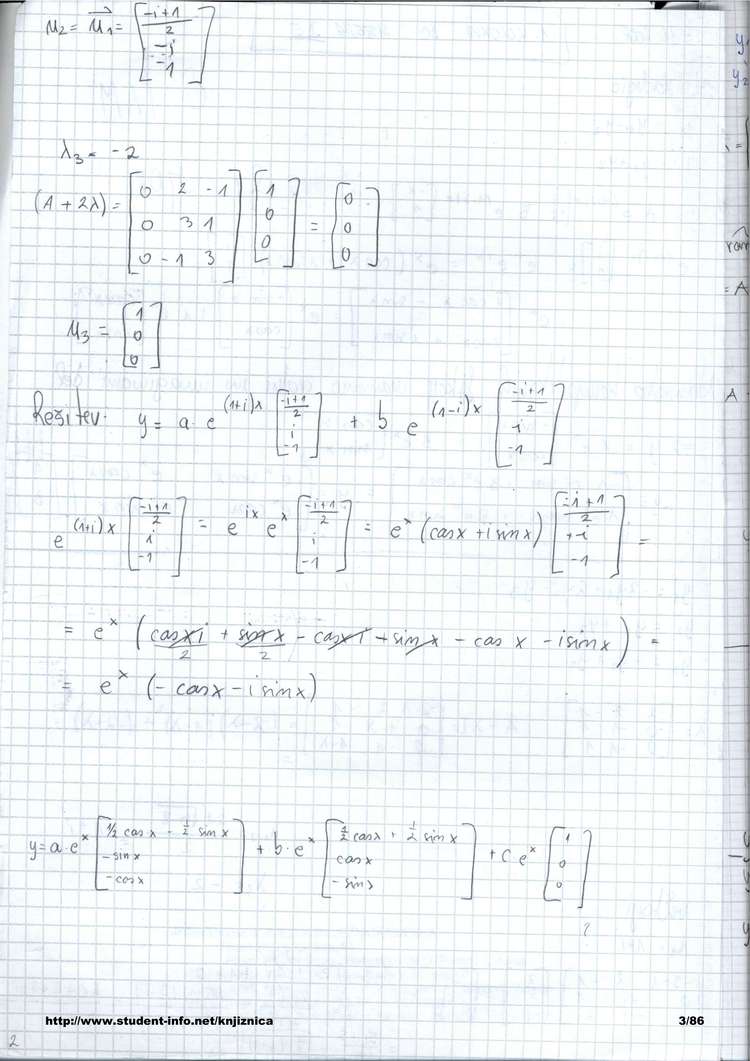 u₂ = u₁ = [ (-i+1)/2 ; -i ; -1 ]
λ₃ = -2
(A + 2λ) = [ 0 2 -1 ; 0 3 1 ; 0 -1 3 ] [ 1 ; 0 ; 0 ] = [ 0 ; 0 ; 0 ]
u₃ = [ 1 ; 0 ; 0 ]
Rešitev. y = a · e^(1+i)x [ (-i+1)/2 ; i ; -1 ] + b e^(1-i)x [ (-i+1)/2 ; i ; -1 ]
e^(1+i)x [ (-i+1)/2 ; i ; -1 ] = e^ix e^x [ (-i+1)/2 ; i ; -1 ] = e^x (cosx + i sinx) [ (-i+1)/2 ; +i ; -1 ] =
= e^x ( cosxi/2 + sinx/2 - cosxi + sinx - cos x - i sinx ) =
= e^x (- cosx - i sinx)
y = a · e^x [ 1/2 cosx - 1/2 sinx ; - sinx ; - cosx ] + b · e^x [ 1/2 cosx + 1/2 sinx ; cosx ; - sinx ] + c e^x [ 1 ; 0 ; 0 ]
?
http://www.student-info.net/knjiznica 3/86
2